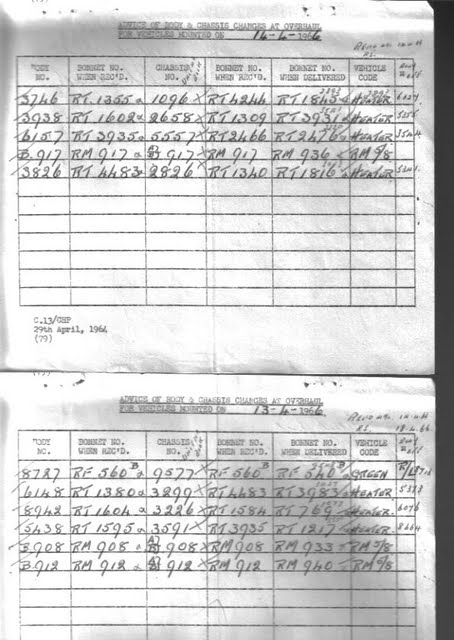 ADVICE OF BODY & CHASSIS CHARGES AT OVERHAUL
FOR VEHICLES MOUNTED ON 14-4-1966
BODY NO. BONNET NO. WHEN REC'D. CHASSIS NO. BONNET NO. WHEN REC'D. BONNET NO. WHEN DELIVERED VEHICLE CODE
3746 RT.1355 1096 RT4244 RT1845 HEATER
3938 RT 1602 2658 RT1309 RT3931 HEATER
6157 RT3935 5557 RT2466 RT2476 HEATER
B.917 RM 917 917 RM 917 RM 936 RM 5/8
3826 RT 4483 2826 RT1340 RT1816 HEATER
C.13/GHP
29th April, 1964
(79)
ADVICE OF BODY & CHASSIS CHARGES AT OVERHAUL
FOR VEHICLES MOUNTED ON 13-4-1966
BODY NO. BONNET NO. WHEN REC'D. CHASSIS NO. BONNET NO. WHEN REC'D. BONNET NO. WHEN DELIVERED VEHICLE CODE
8727 RF 560 9577 RF 560 B RF 546 B GREEN
6148 RT 1380 3299 RT4483 RT3983 HEATER
8942 RT 1604 3226 RT1584 RT 769 HEATER 6076
5438 RT 1595 3591 RT3935 RT1217 HEATER 8664
B.908 RM 908 908 RM908 RM 933 RM 5/8
B.912 RM 912 912 RM 912 RM 940 RM 5/8